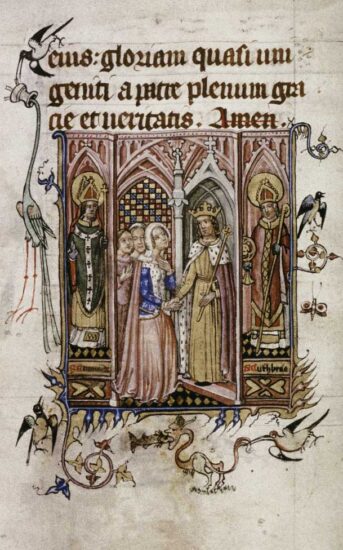 eius: gloriam quasi uni
geniti a patre plenum gra
cie et ueritatis. Amen.